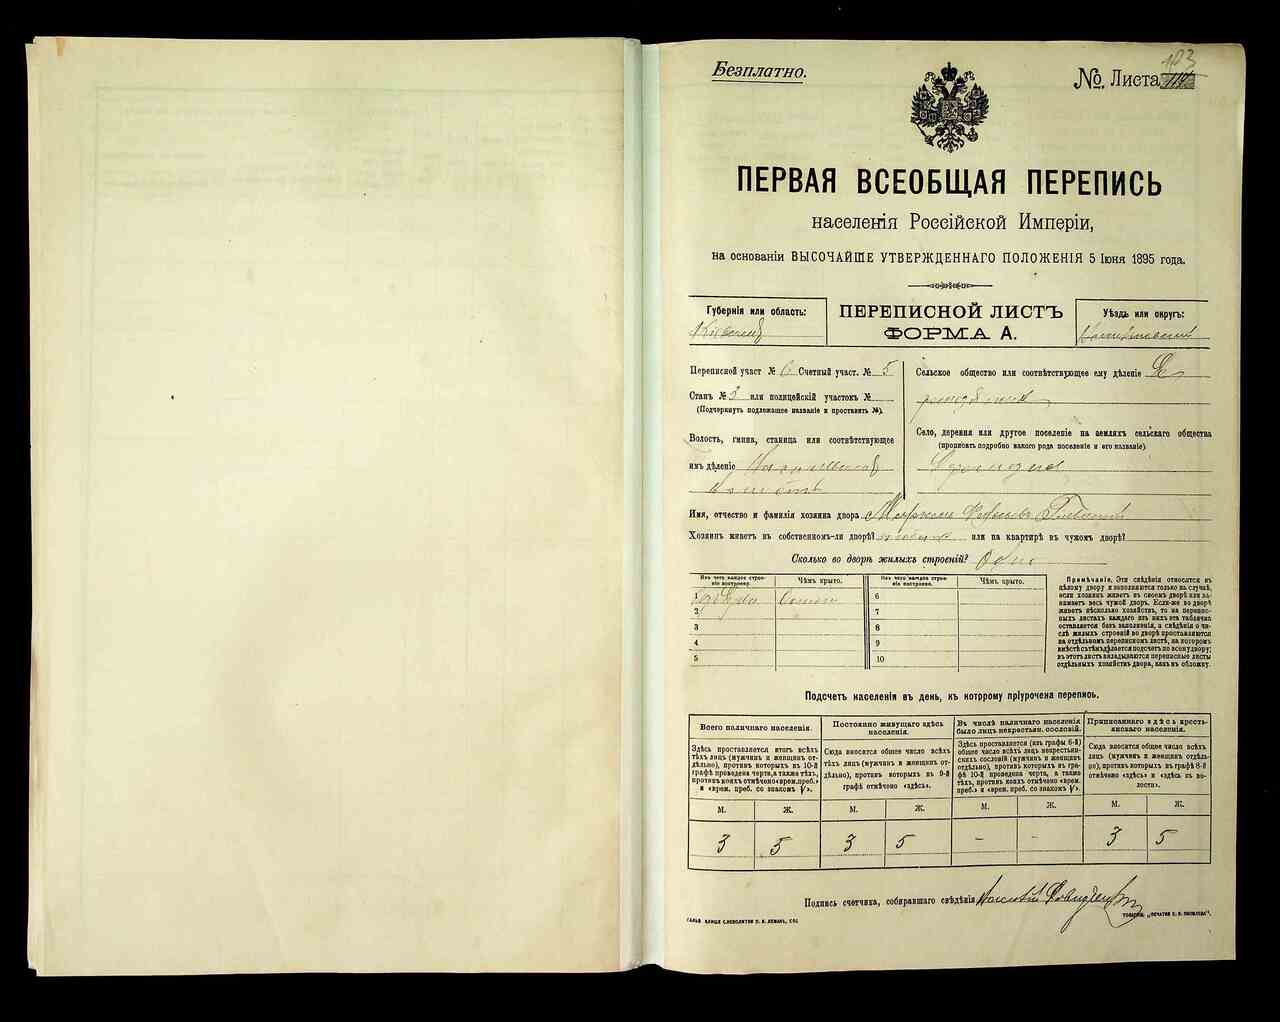 Безплатно.
№ Листа 103
ПЕРВАЯ ВСЕОБЩАЯ ПЕРЕПИСЬ
населенія Россійской Имперіи,
на основаніи ВЫСОЧАЙШЕ УТВЕРЖДЕННАГО ПОЛОЖЕНІЯ 5 Іюня 1895 года.
Губернія или область:
Кіевская
ПЕРЕПИСНОЙ ЛИСТЪ
ФОРМА А.
Уѣздъ или округъ:
Переписной участ № 6 Счетный участ. № 5
Станъ № 2 или полицейскій участокъ №
(Подчеркнуть подлежащее названіе и проставить №).
Волость, гмина, станица или соотвѣтствующее
имъ дѣленіе
волость
Сельское общество или соотвѣтствующее ему дѣленіе
Село, деревня или другое поселеніе на земляхъ сельскаго общества
(прописать подробно какого рода поселеніе и его названіе)
Имя, отчество и фамилія хозяина двора
Хозяинъ живетъ въ собственномъ-ли дворѣ? или на квартирѣ въ чужомъ дворѣ?
Сколько во дворѣ жилыхъ строеній? Одно
Изъ чего каждое строе-
ніе построено.
Чѣмъ крыто.
Изъ чего каждое строе-
ніе построено.
Чѣмъ крыто.
1
2
3
4
5
6
7
8
9
10
Примѣчаніе. Эти свѣдѣнія относятся къ
цѣлому двору и заполняются только въ случаѣ,
если хозяинъ живетъ въ своемъ дворѣ или за-
нимаетъ весь чужой дворъ. Если-же во дворѣ
живетъ нѣсколько хозяйствъ, то на перепис-
ныхъ листахъ каждаго изъ нихъ эта табличка
оставляется безъ заполненія, а свѣдѣнія о чи-
слѣ жилыхъ строеній во дворѣ проставляются
на отдѣльномъ переписномъ листѣ, на которомъ
вмѣстѣ съ тѣмъ дѣлается подсчетъ по всему двору;
въ этотъ листъ вкладываются переписные листы
отдѣльныхъ хозяйствъ двора, какъ въ обложку.
Подсчетъ населенія въ день, къ которому пріурочена перепись.
Всего наличнаго населенія.
Здѣсь проставляется итогъ всѣхъ
тѣхъ лицъ (мужчинъ и женщинъ от-
дѣльно), противъ которыхъ въ 10-й
графѣ проведена черта, а также тѣхъ,
противъ коихъ отмѣчено «врем. преб.»
и «врем. преб. со знакомъ V».
Постоянно живущаго здѣсь
населенія.
Сюда вносится общее число всѣхъ
тѣхъ лицъ (мужчинъ и женщинъ от-
дѣльно), противъ которыхъ въ 9-й
графѣ отмѣчено «здѣсь».
Въ числѣ наличнаго населенія
было лицъ некрестьян. сословій.
Здѣсь проставляется (изъ графы 6-й)
общее число всѣхъ лицъ некрестьян-
скихъ сословій (мужчинъ и женщинъ
отдѣльно), противъ которыхъ въ гра-
фѣ 10-й проведена черта, а также
тѣхъ, противъ коихъ отмѣчено «врем.
преб.» и «врем. преб. со знакомъ V».
Приписаннаго здѣсь кресть-
янскаго населенія.
Сюда вносится общее число всѣхъ
лицъ (мужчинъ и женщинъ отдѣль-
но), противъ которыхъ въ графѣ 8-й
отмѣчено «здѣсь» и «здѣсь въ во-
лости».
М. Ж. М. Ж. М. Ж. М. Ж.
3 5 3 5 - - 3 5
Подпись счетчика, собиравшаго свѣдѣнія